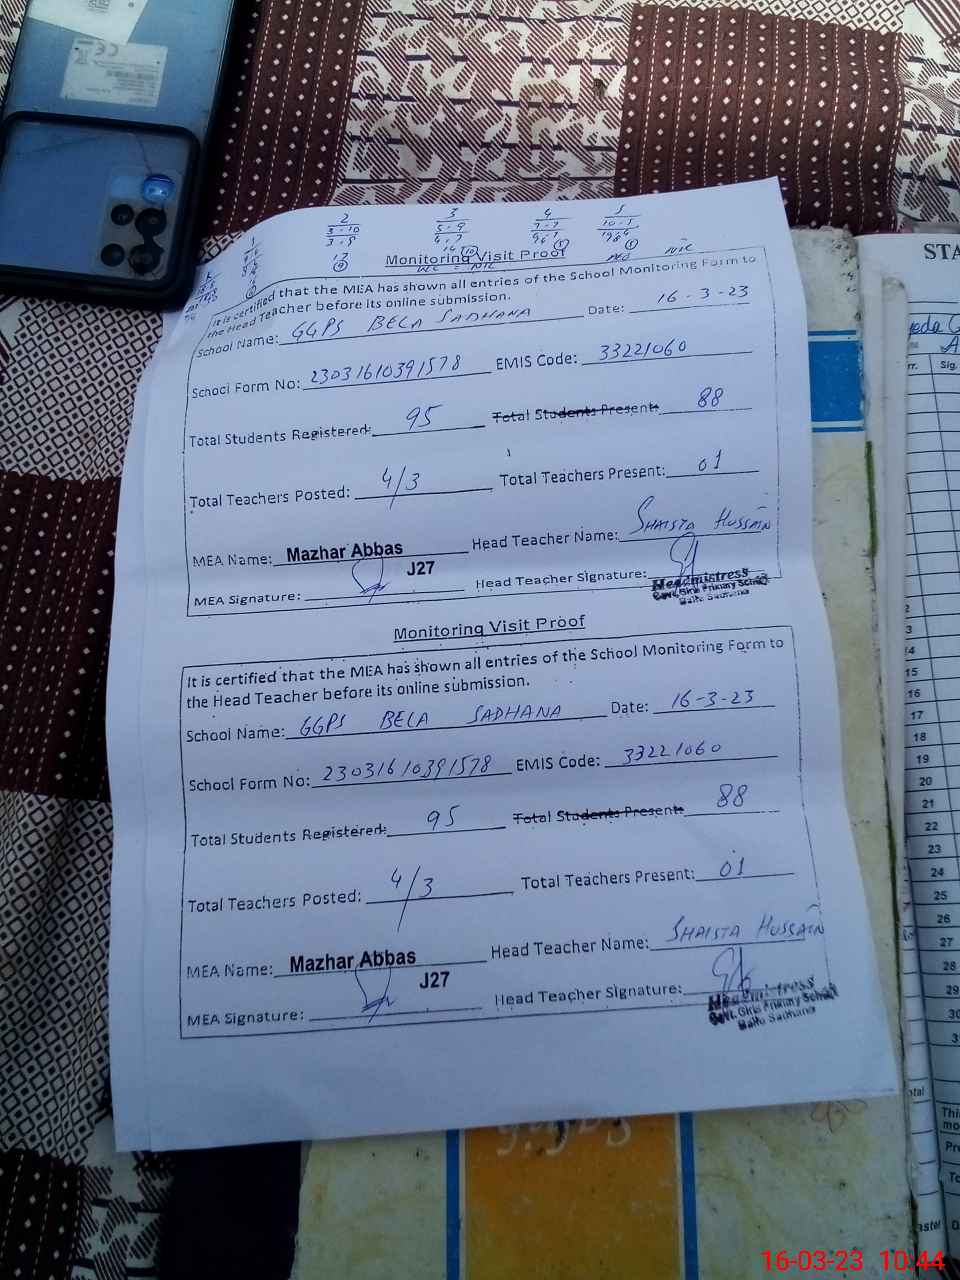 2 3 4 5
Monitoring Visit Proof
It is certified that the MEA has shown all entries of the School Monitoring Form to
the Head Teacher before its online submission.
School Name: GGPS BELA SADHANA Date: 16-3-23
School Form No: 23031610391578 EMIS Code: 33221060
Total Students Registered: 95 Total Students Present: 88
Total Teachers Posted: 4/3 Total Teachers Present: 01
MEA Name: Mazhar Abbas Head Teacher Name: SHAISTA HUSSAIN
J27
MEA Signature: Head Teacher Signature:
Headmistress
Govt. Girls Primary School
Sadhana
Monitoring Visit Proof
It is certified that the MEA has shown all entries of the School Monitoring Form to
the Head Teacher before its online submission.
School Name: GGPS BELA SADHANA Date: 16-3-23
School Form No: 23031610391578 EMIS Code: 33221060
Total Students Registered: 95 Total Students Present: 88
Total Teachers Posted: 4/3 Total Teachers Present: 01
MEA Name: Mazhar Abbas Head Teacher Name: SHAISTA HUSSAIN
J27
MEA Signature: Head Teacher Signature:
Headmistress
Govt. Girls Primary School
Sadhana
STA
Sig.
15
16
17
18
19
20
21
22
23
24
25
26
27
28
29
16-03-23 10:44